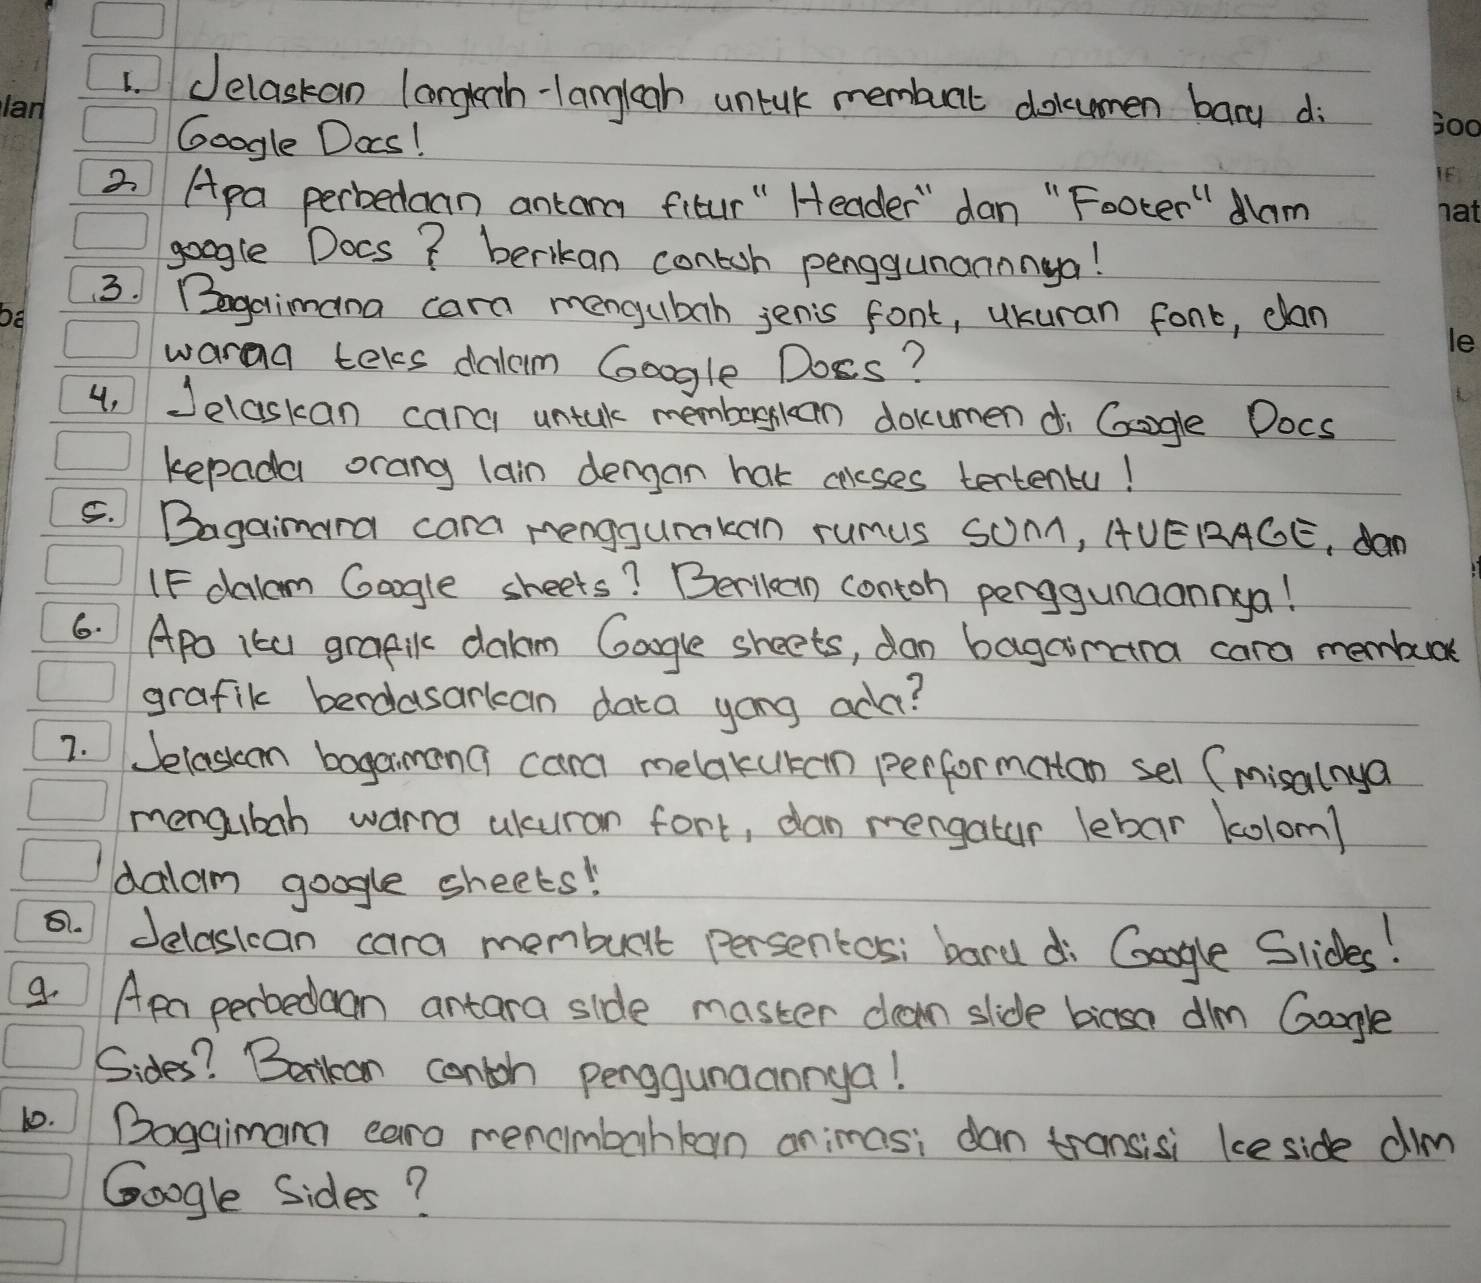 1. Jelaskan langkah-langkah untuk membuat dokumen baru di
Google Docs!
2. Apa perbedaan antara fitur "Header" dan "Footer" dlam
google Docs? berikan contoh penggunaannya!
3. Bagaimana cara mengubah jenis font, ukuran font, dan
warna teks dalam Google Docs?
4. Jelaskan cara untuk membagikan dokumen di Google Docs
kepada orang lain dengan hak akses tertentu!
5. Bagaimana cara menggunakan rumus SUM, AVERAGE, dan
IF dalam Google sheets? Berikan contoh penggunaannya!
6. Apa itu grafik dalam Google sheets, dan bagaimana cara membuat
grafik berdasarkan data yang ada?
7. Jelaskan bagaimana cara melakukan performatan sel (misalnya
mengubah warna ukuran font, dan mengatur lebar kolom)
dalam google sheets!
8. Jelaskan cara membuat persentasi baru di Google Slides!
9. Apa perbedaan antara slde master dan slide biasa dlm Google
Sides? Berikan contoh penggunaannya!
10. Bagaimana cara menambahkan animasi dan transisi ke side dlm
Google Sides?
lan
Goo
hat
ba
le